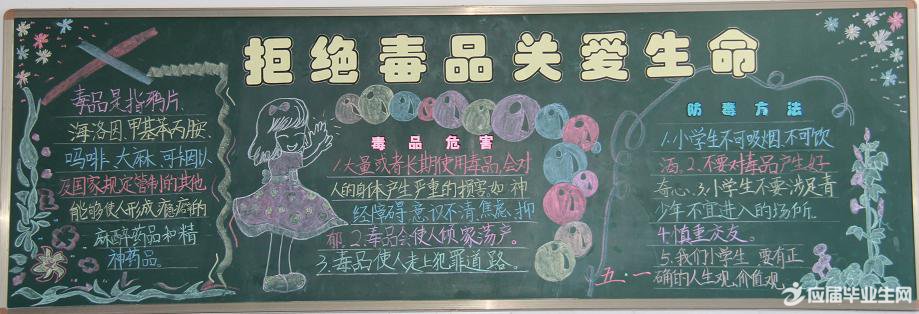 拒绝毒品关爱生命
毒品是指鸦片、
海洛因、甲基苯丙胺、
吗啡、大麻、可卡因以
及国家规定管制的其他
能够使人形成瘾癖的
麻醉药品和精
神药品。
毒品危害
1.大量或者长期使用毒品,会对
人的身体产生严重的损害如:神
经障碍、意仅不清、焦虑、抑
郁。2.毒品会使人倾家荡产。
3.毒品使人走上犯罪道路。
防毒方法
1.小学生不可吸烟,不可饮
酒。2.不要对毒品产生好
奇心。3.小学生不要涉足青
少年不宜进入的场所.
4.慎重交友。
5.我们小学生要有正
确的人生观、价值观
五·一
应届毕业生网